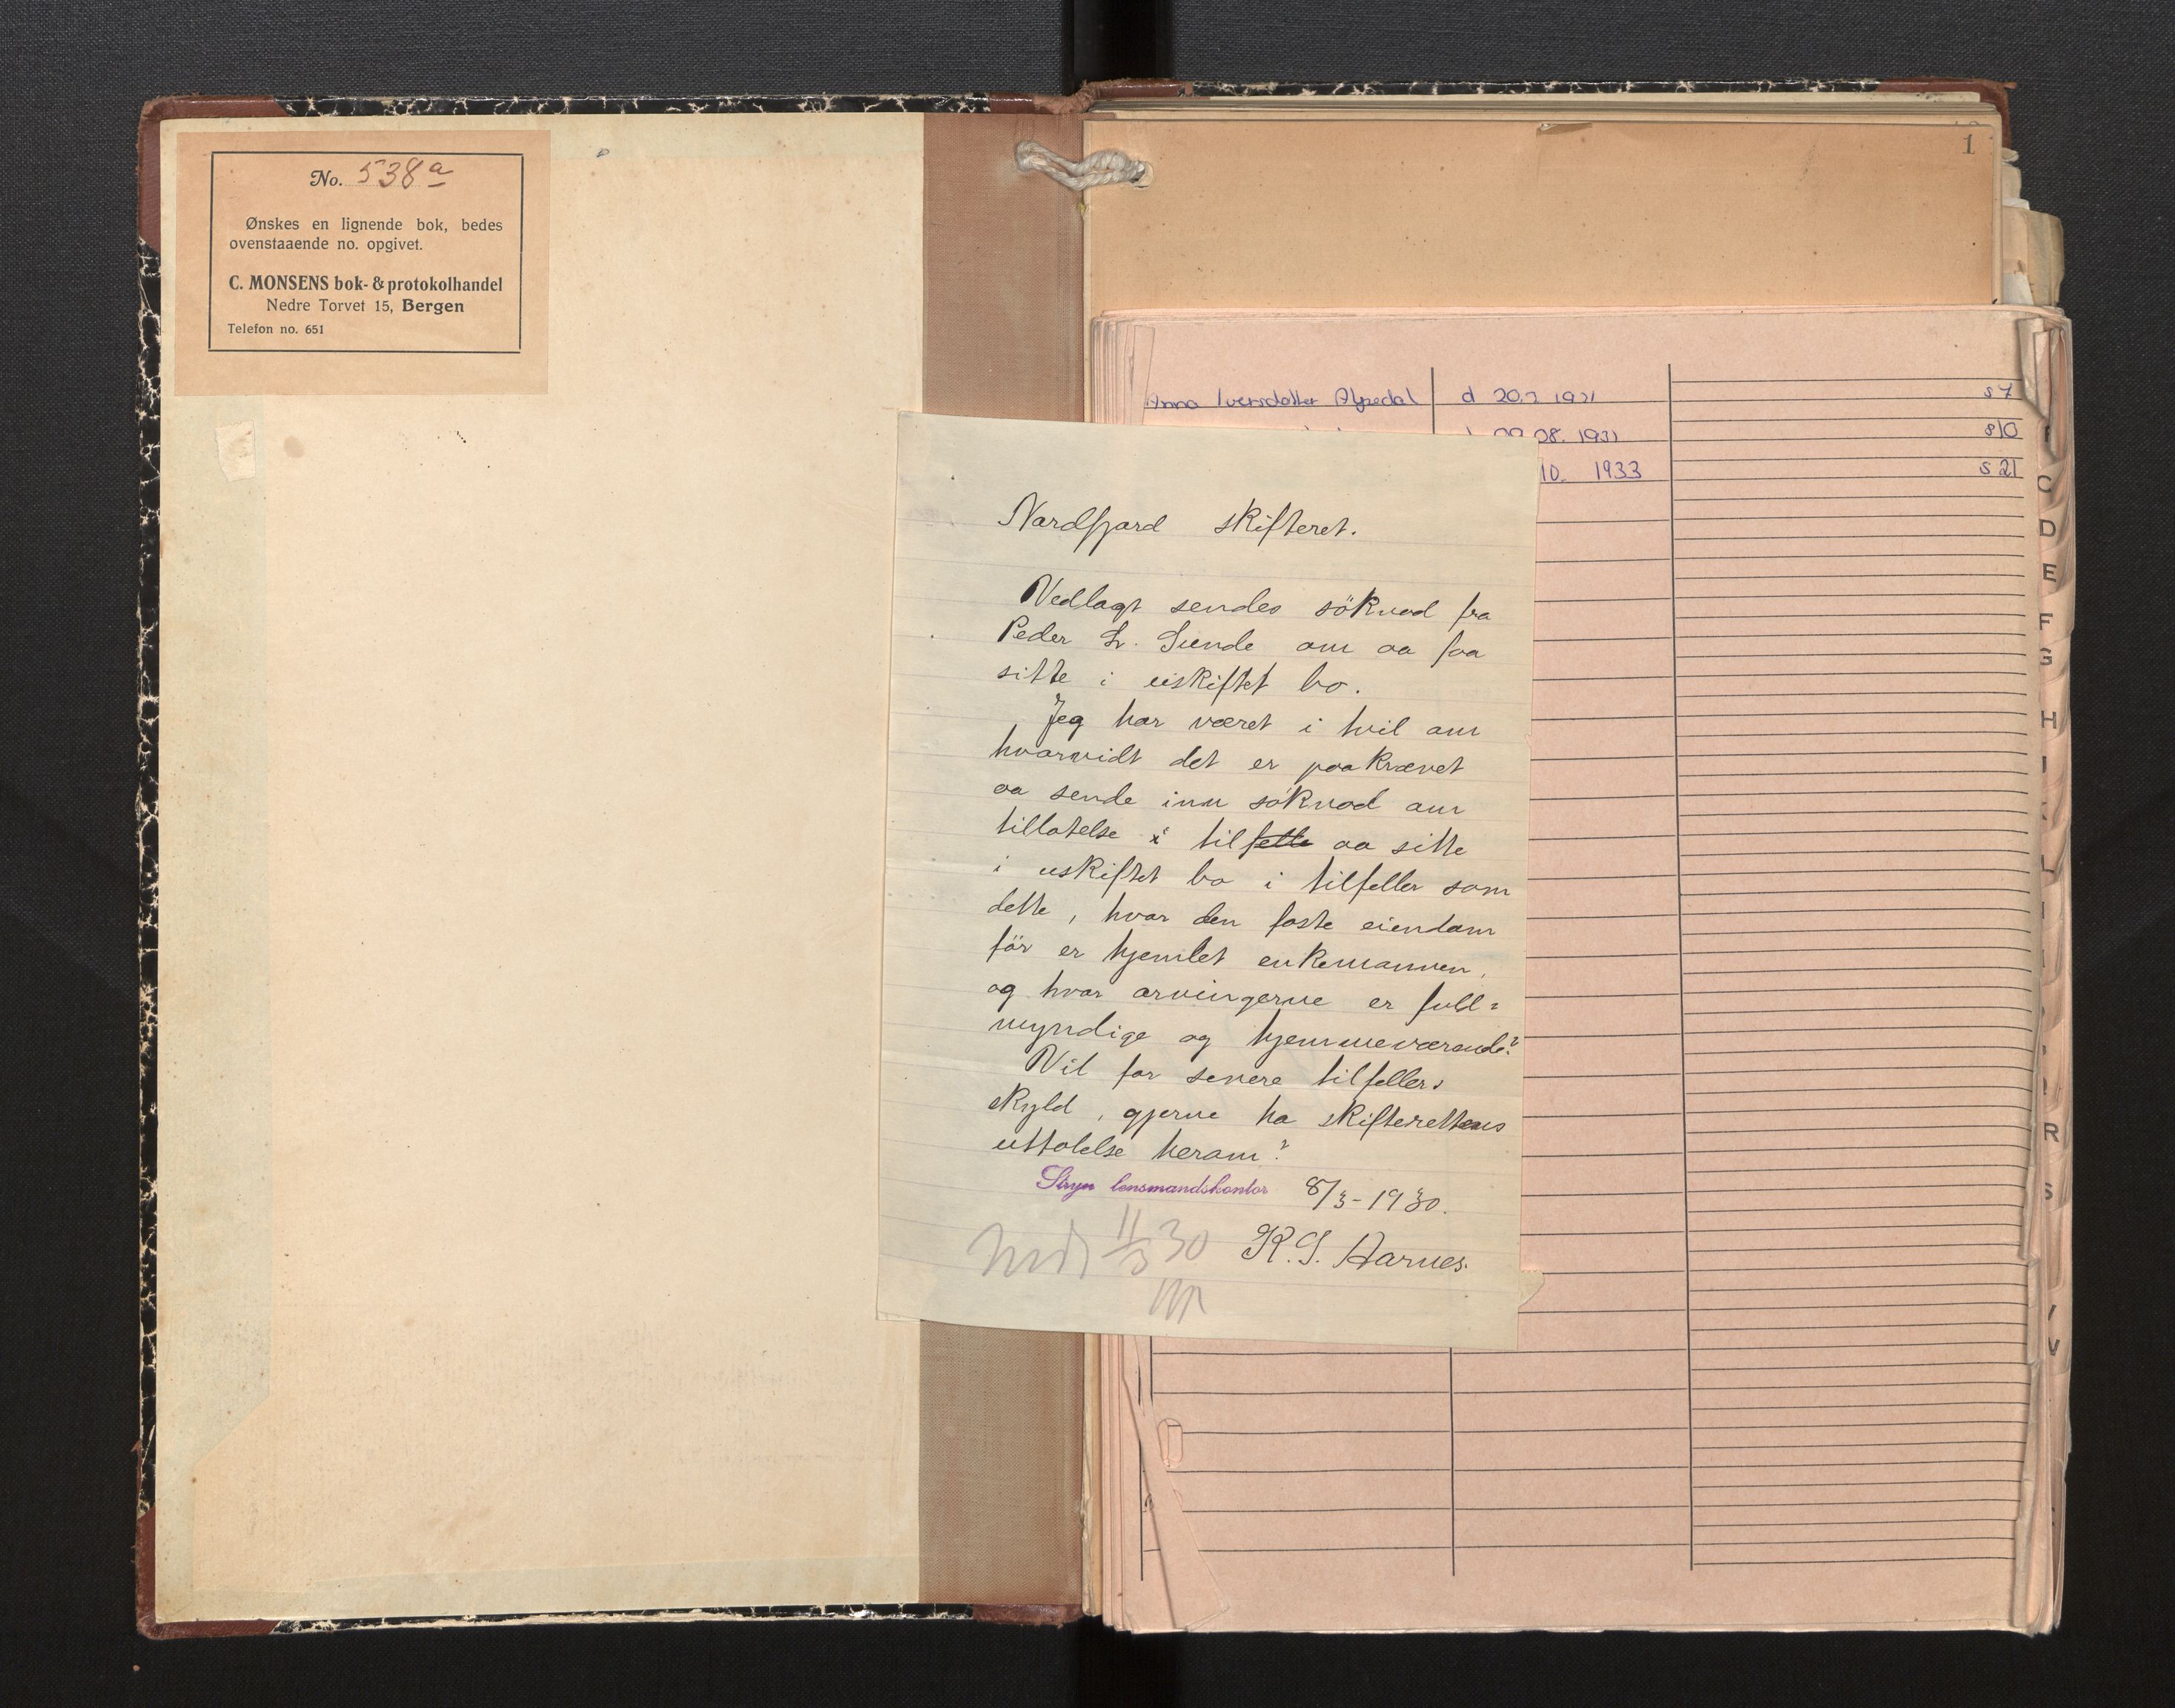 No. 538a
Ønskes en lignende bok, bedes
ovenstaaende no. opgivet.
C. MONSENS bok- & protokolhandel
Nedre Torvet 15, Bergen
Telefon no. 651
1
Anna Iversdotter d 20.2 1931 s 7
08. 1931 s 10
10. 1933 s 21
Nordfjord skifteret.
Vedlagt sendes söknad fra
Peder L. Sunde om aa faa
sitte i uskiftet bo.
Jeg har været i tvil om
hvorvidt det er paakrævet
aa sende inn söknad om
tillatelse til aa sitte
i uskiftet bo i tilfeller som
dette, hvor den faste eiendom
för er hjemlet enkemannen,
og hvor arvingerne er full=
myndige og hjemmeværende?
Vil for senere tilfellers
skyld, gjerne ha skifterettens
uttalelse herom?
Stryn lensmandskontor 8/3-1930.
11/3 30 K. S. Aarnes.
C
D
E
F
G
H
I
K
L
R
S
V